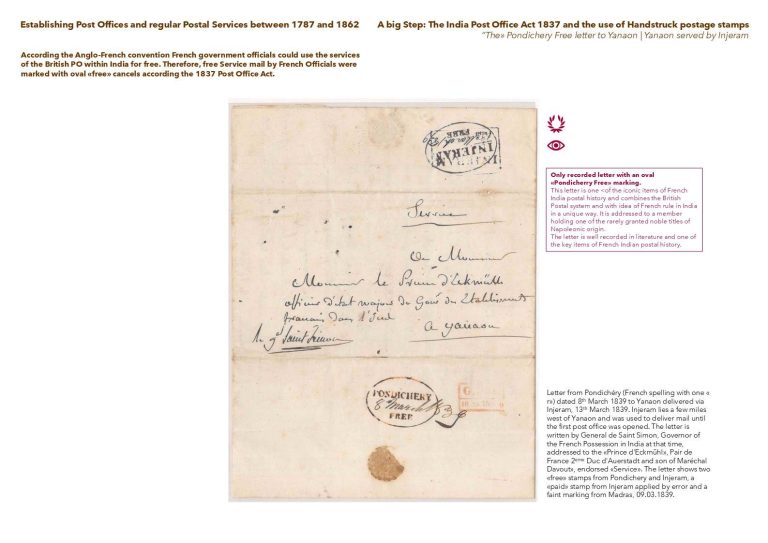 Establishing Post Offices and regular Postal Services between 1787 and 1862
A big Step: The India Post Office Act 1837 and the use of Handstruck postage stamps
"The» Pondichery Free letter to Yanaon | Yanaon served by Injeram
According the Anglo-French convention French government officials could use the services
of the British PO within India for free. Therefore, free Service mail by French Officials were
marked with oval «free» cancels according the 1837 Post Office Act.
INJERAM
FREE
Service
Monsieur le Prince d'Eckmühl
français dans l'Inde
a yanaon
PONDICHERY
8 March 1839
FREE
Only recorded letter with an oval
«Pondicherry Free» marking.
This letter is one <of the iconic items of French
India postal history and combines the British
Postal system and with idea of French rule in India
in a unique way. It is addressed to a member
holding one of the rarely granted noble titles of
Napoleonic origin.
The letter is well recorded in literature and one of
the key items of French Indian postal history.
Letter from Pondichéry (French spelling with one «
r») dated 8th March 1839 to Yanaon delivered via
Injeram, 13th March 1839. Injeram lies a few miles
west of Yanaon and was used to deliver mail until
the first post office was opened. The letter is
written by General de Saint Simon, Governor of
the French Possession in India at that time,
addressed to the «Prince d'Eckmühl», Pair de
France 2ème Duc d'Auerstadt and son of Maréchal
Davout», endorsed «Service». The letter shows two
«free» stamps from Pondichery and Injeram, a
«paid» stamp from Injeram applied by error and a
faint marking from Madras, 09.03.1839.